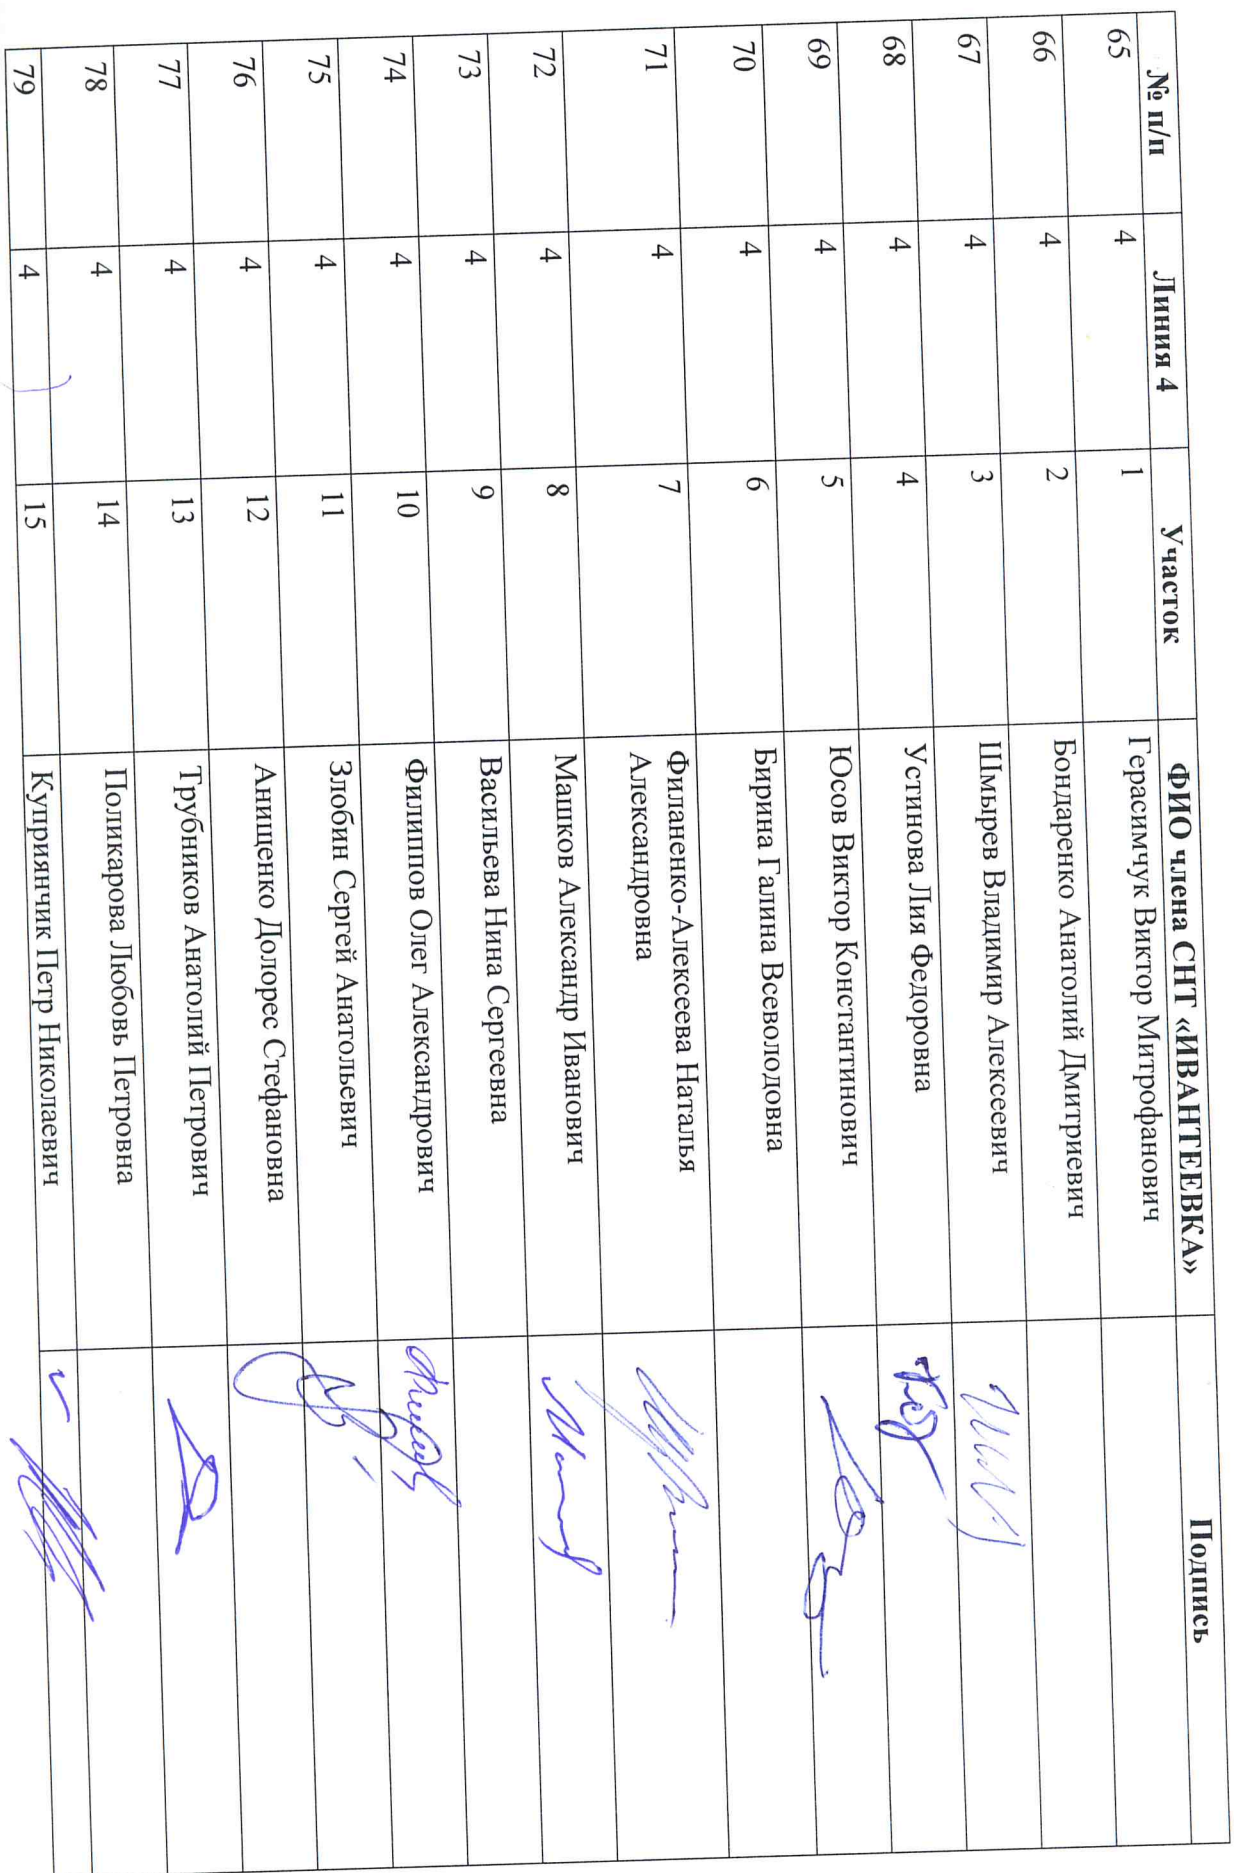 № п/п Линия 4 Участок ФИО члена СНТ «ИВАНТЕЕВКА» Подпись
65 4 1 Герасимчук Виктор Митрофанович
66 4 2 Бондаренко Анатолий Дмитриевич
67 4 3 Шмырев Владимир Алексеевич
68 4 4 Устинова Лия Федоровна
69 4 5 Юсов Виктор Константинович
70 4 6 Бирина Галина Всеволодовна
71 4 7 Филаненко-Алексеева Наталья
Александровна
72 4 8 Машков Александр Иванович
73 4 9 Васильева Нина Сергеевна
74 4 10 Филиппов Олег Александрович
75 4 11 Злобин Сергей Анатольевич
76 4 12 Анищенко Долорес Стефановна
77 4 13 Трубников Анатолий Петрович
78 4 14 Поликарова Любовь Петровна
79 4 15 Куприянчик Петр Николаевич